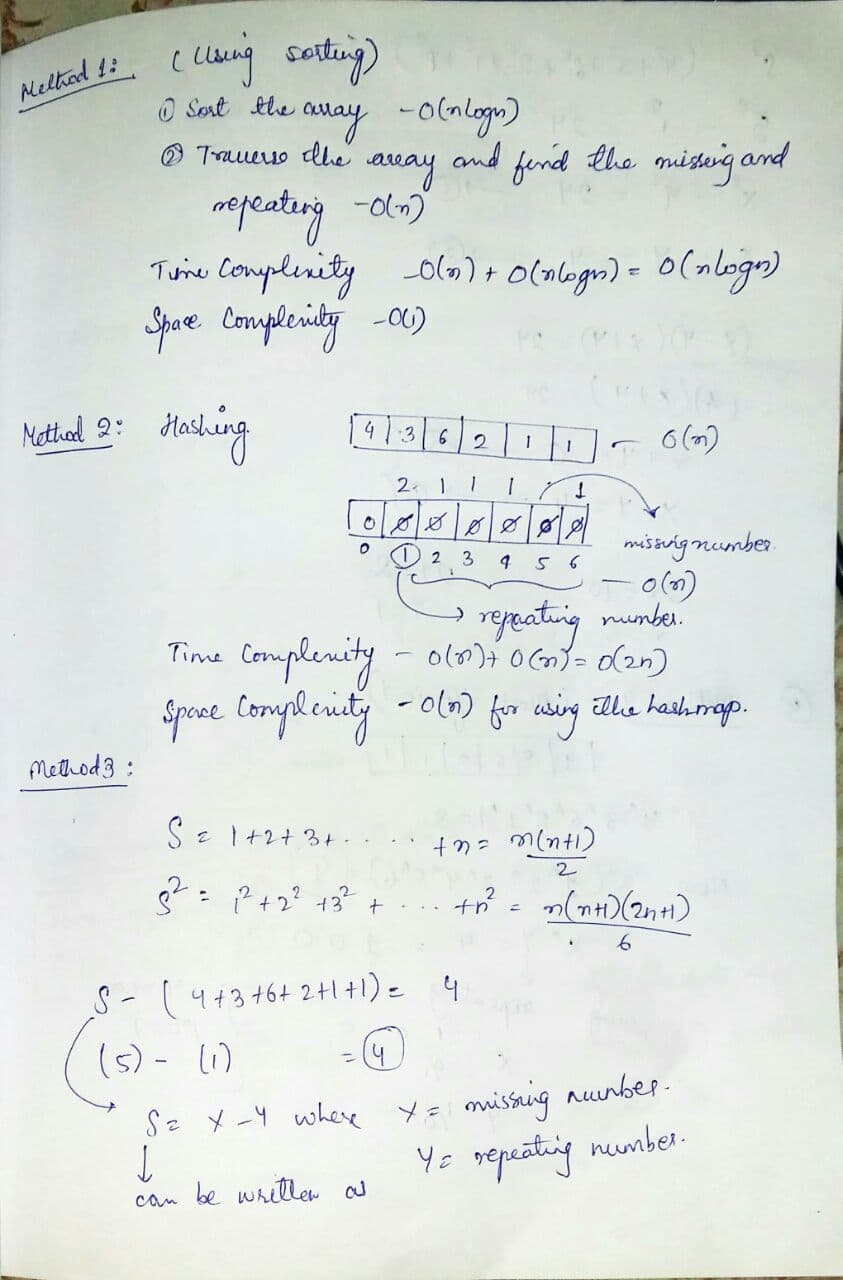 Method 1: (Using sorting)
① Sort the array - O(nlogn)
② Traverse the array and find the missing and
repeating - O(n)
Time Complexity - O(n) + O(nlogn) = O(nlogn)
Space Complexity - O(1)
Method 2: Hashing 4 3 6 2 1 1 - O(n)
2 1 1 1 1
0 0 0 0 0 0 0
0 1 2 3 4 5 6 missing number.
- O(n)
repeating number.
Time Complexity - O(n) + O(n) = O(2n)
Space Complexity - O(n) for using the hashmap.
Method 3:
S = 1+2+3+ ..... +n = n(n+1)/2
S² = 1² + 2² + 3² + ... +n² = n(n+1)(2n+1)/6
S - (4+3+6+2+1+1) = 4
(5) - (1) = 4
S = X - Y where X = missing number.
Y = repeating number.
can be written as